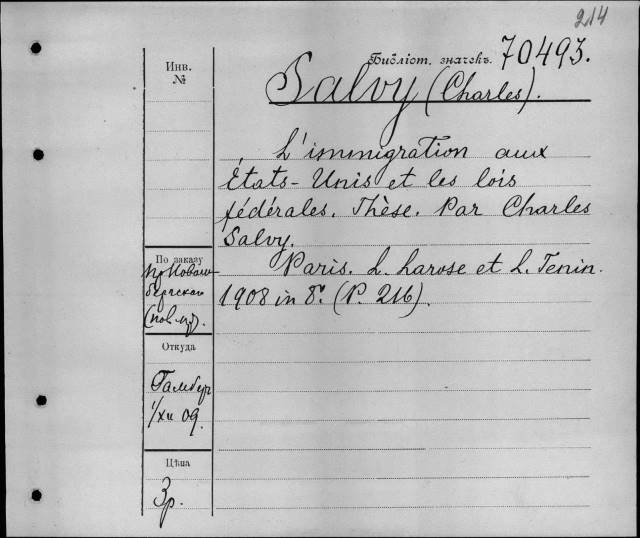 214
Библіот. значекъ. 70493.
Salvy (Charles).
L'immigration aux
États-Unis et les lois
fédérales. Thèse. Par Charles
Salvy.
Paris. L. Larose et L. Tenin.
1908 in 8º. (P. 216).
Инв.
№
По заказу
Откуда
1/XII 09.
Цѣна
3 р.